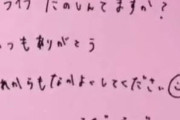 ライフ たのしんてますか?
つも ありがとう
れからも なかよくしてください